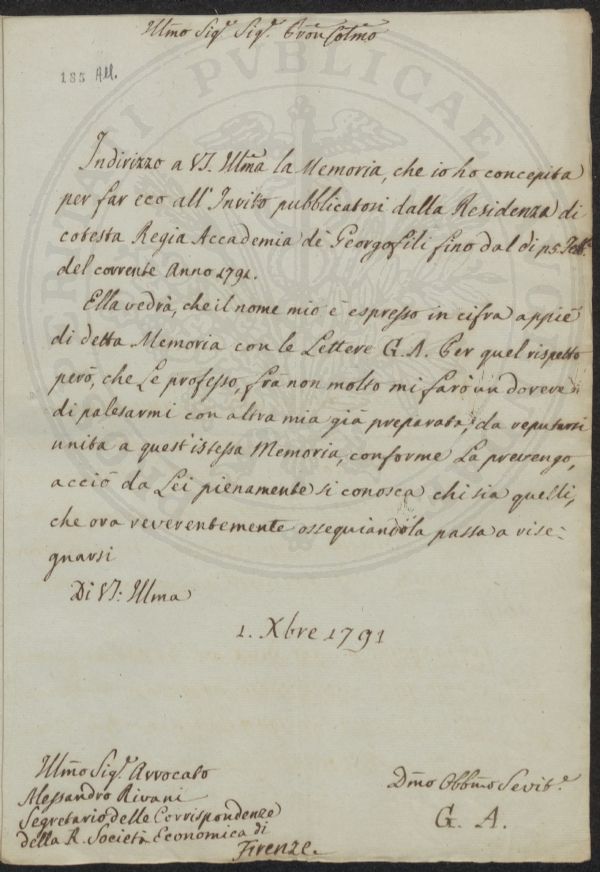 Illmo Sig.r Sig.r Pron Colmo
185 All.
Indirizzo a VS. Illma la Memoria, che io ho concepita
per far eco all' Invito pubblicatosi dalla Residenza di
cotesta Regia Accademia de Georgofili fino dal dì
del corrente Anno 1791.
Ella vedrà, che il nome mio è espresso in cifra appiè
di detta Memoria con le Lettere G. A. Per quel rispetto
però, che Le professo, frà non molto mi farò un dovere
di palesarmi con altra mia già preparata, da reputarsi
unita a quest' istessa Memoria, conforme La prevengo,
acciò da Lei pienamente si conosca chi sia quelli,
che ora reverentemente ossequiandola passa a rise-
gnarsi
Di VS: Illma
1. Xbre 1791
Illmo Sig.r Avvocato
Alessandro Rivani
Segretario delle Corrispondenze
della R. Società Economica di
Firenze.
Dmo Obbmo Servit.e
G. A.
PUBLICAE